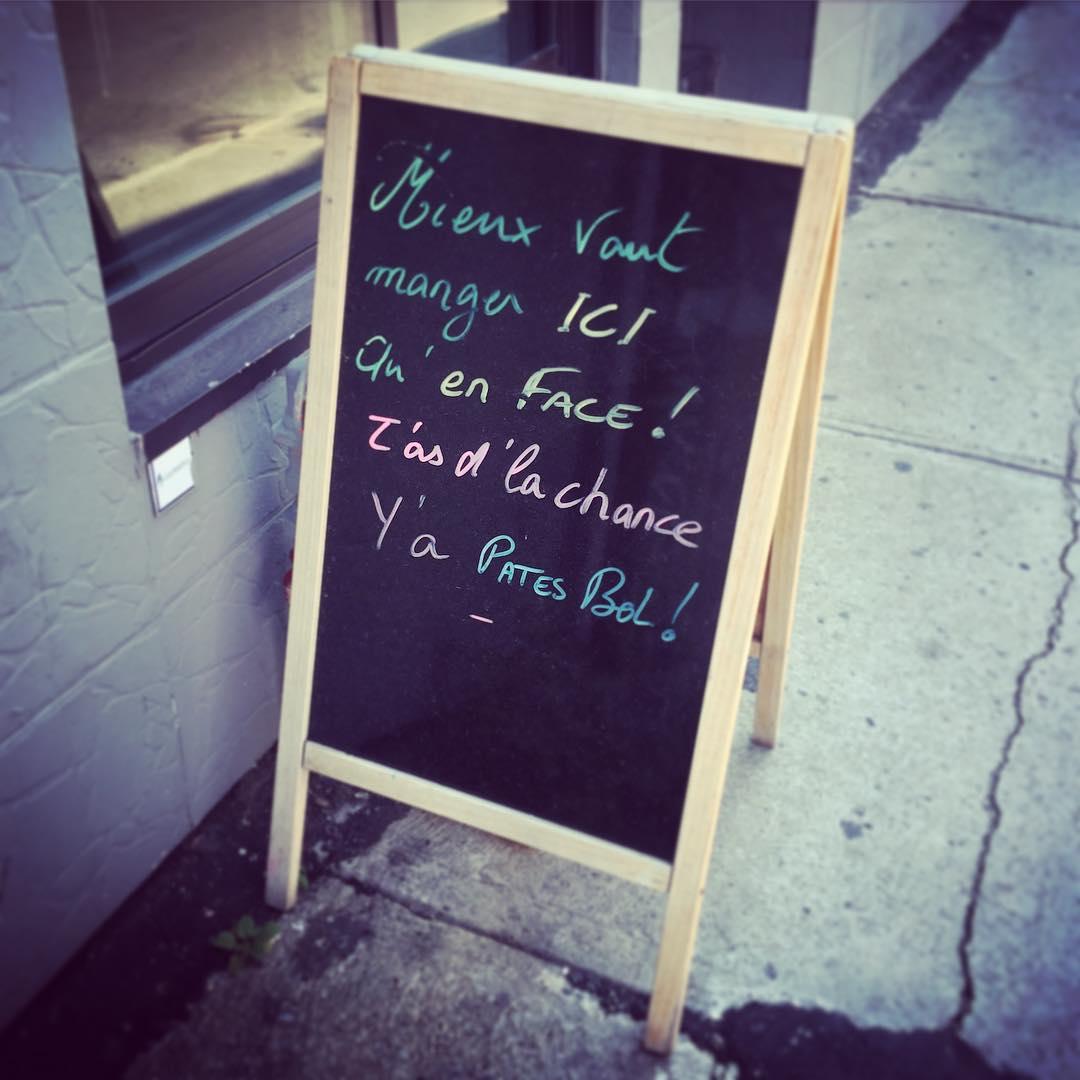 Mieux vaut
manger ICI
Qu'en FACE !
T'as d'la chance
Y'a PATES BOL !